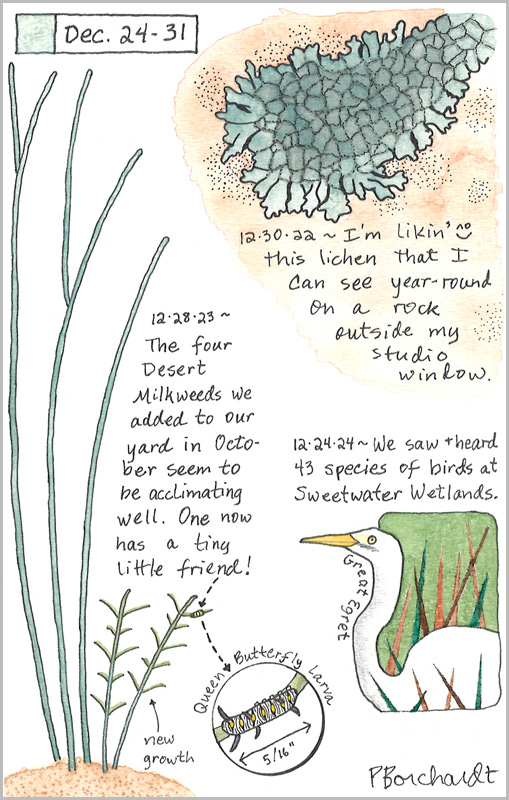 Dec. 24-31
12·30·22 ~ I'm likin'
this lichen that I
can see year-round
on a rock
outside my
studio
window.
12·28·23 ~
The four
Desert
Milkweeds we
added to our
yard in Octo-
ber seem to
be acclimating
well. One now
has a tiny
little friend!
12·24·24 ~ We saw + heard
43 species of birds at
Sweetwater Wetlands.
Great Egret
Queen Butterfly Larva
5/16"
new
growth
PBorchardt